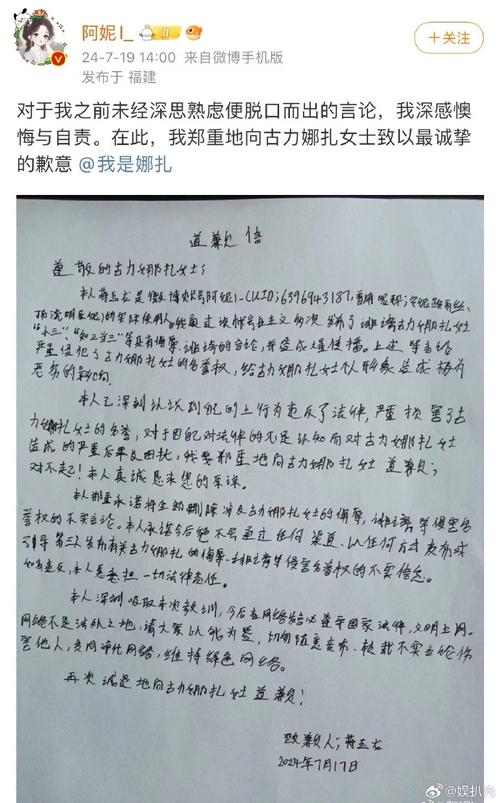 阿妮I_
+关注
24-7-19 14:00 来自微博手机版
发布于 福建
对于我之前未经深思熟虑便脱口而出的言论，我深感懊
悔与自责。在此，我郑重地向古力娜扎女士致以最诚挚
的歉意 @我是娜扎
道歉信
尊敬的古力娜扎女士：
本人蒋玉龙是微博账号阿妮I-(UID:6396943187,曾用昵称:
的实际使用人。我通过该账号自主义多次发布了诽谤古力娜扎女士
"小三"、"知三当三"等具有侮辱、诽谤的言论，并造成传播。上述等言论
严重侵犯了古力娜扎女士的名誉权，给古力娜扎女士个人形象造成极为
恶劣的影响。
本人已深刻认识到自己的上行为违反了法律，严重损害了古
力娜扎女士的名誉，对于因自己对法律的不足认知而对古力娜扎女士
造成的严重后果及困扰，我要郑重地向古力娜扎女士道歉，
对不起！本人真诚恳求您的原谅。
本人郑重承诺将全部删除涉及古力娜扎女士的侮辱、诽谤等侵害名
誉权的不实言论。本人承诺今后绝不会通过任何渠道、以任何方式发布或
引导第三人发布有关古力娜扎的侮辱、诽谤等侵害名誉权的不实信息。
如有违反，本人愿意承担一切法律责任。
本人深刻吸取本次教训，今后在网络发言必遵守国家法律，文明上网。
网络不是法外之地，请大家以我为鉴，切勿随意发布、转载不实言论伤
害他人，共同净化网络，维持绿色网络。
再次诚恳地向古力娜扎女士道歉！
致歉人：蒋玉龙
2024年7月17日
@娱扒